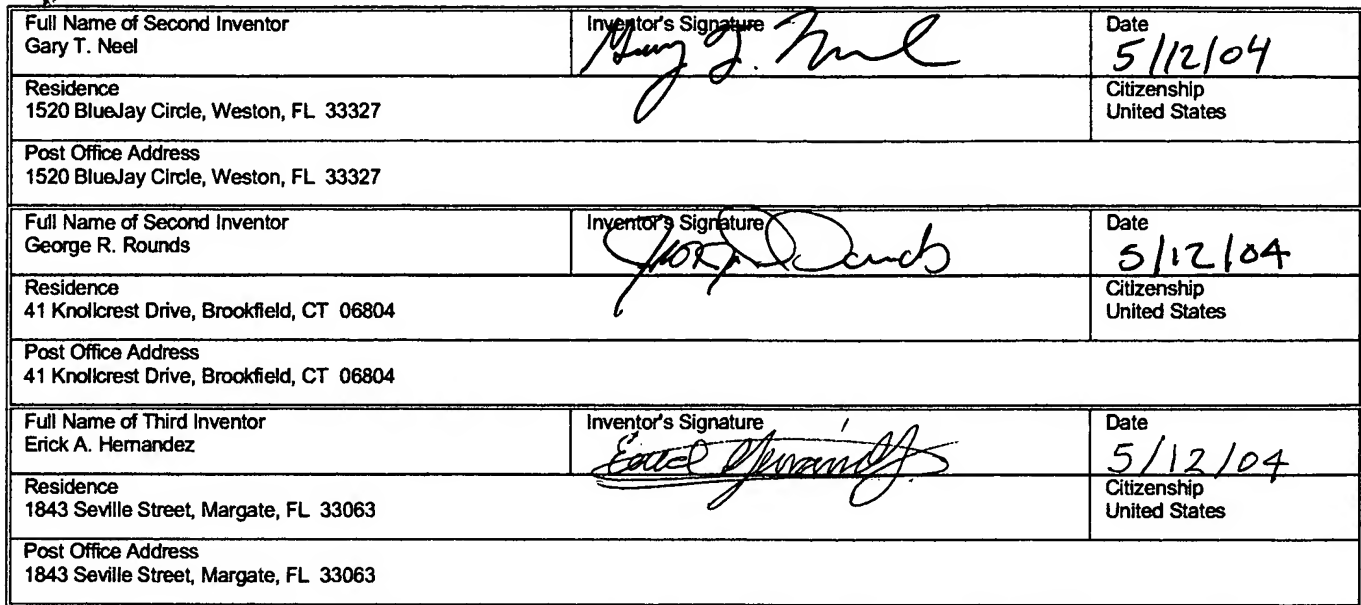 Full Name of Second Inventor
Gary T. Neel
Inventor's Signature
Gary T. Neel
Date
5/12/04
Residence
1520 BlueJay Circle, Weston, FL 33327
Citizenship
United States
Post Office Address
1520 BlueJay Circle, Weston, FL 33327
Full Name of Second Inventor
George R. Rounds
Inventor's Signature
Date
5/12/04
Residence
41 Knollcrest Drive, Brookfield, CT 06804
Citizenship
United States
Post Office Address
41 Knollcrest Drive, Brookfield, CT 06804
Full Name of Third Inventor
Erick A. Hernandez
Inventor's Signature
Date
5/12/04
Residence
1843 Seville Street, Margate, FL 33063
Citizenship
United States
Post Office Address
1843 Seville Street, Margate, FL 33063